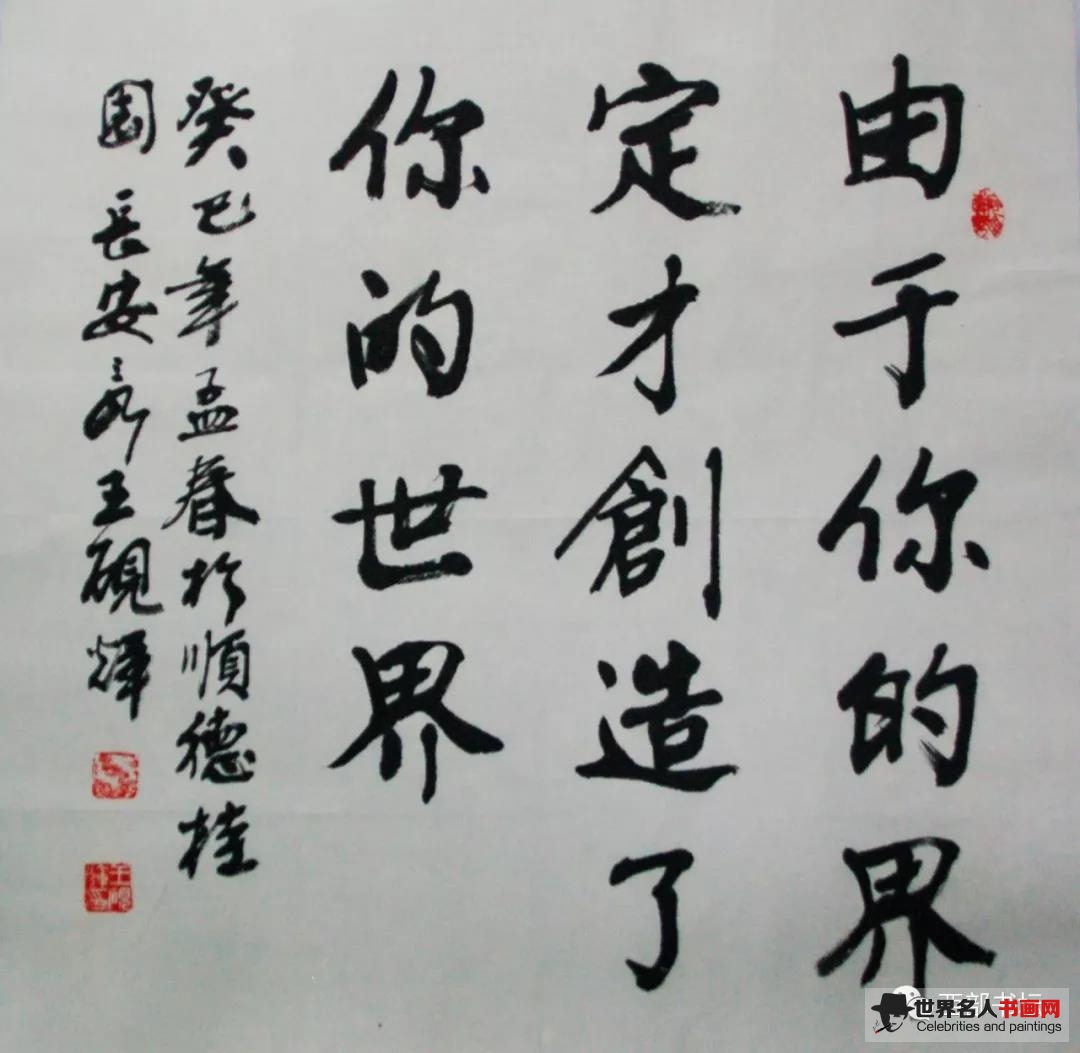 由于你的界
定才創造了
你的世界
癸巳年孟春於順德桂
園 長安 王硯輝
世界名人书画网
Celebrities and paintings